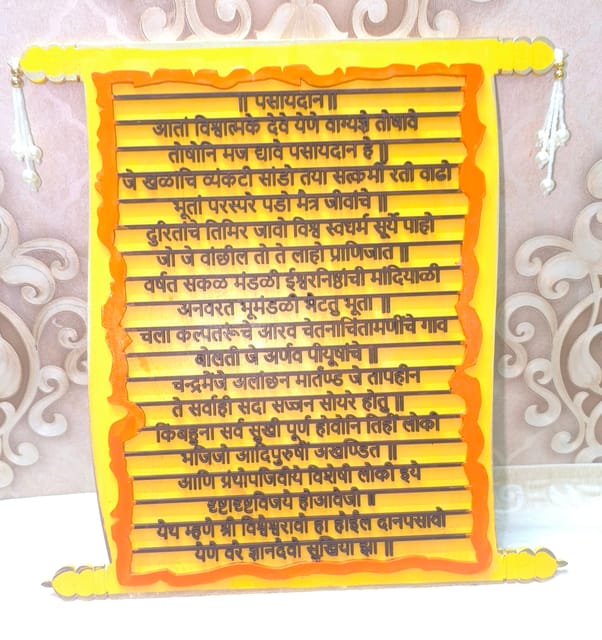 ॥ पसायदान ॥
आतां विश्वात्मके देवे येणे वाग्यज्ञे तोषावे
तोषोनि मज द्यावे पसायदान हे ॥
जे खळांचि व्यंकटी सांडो तया सत्कर्मी रती वाढो
भूतां परस्परे पडो मैत्र जीवांचे ॥
दुरितांचे तिमिर जावो विश्व स्वधर्म सूर्ये पाहो
जो जे वांछील तो ते लाहो प्राणिजात ॥
वर्षत सकळ मंडळी ईश्वरनिष्ठांची मांदियाळी
अनवरत भूमंडळी भेटतु भूता ॥
चला कल्पतरूंचे आरव चेतनाचिंतामणींचे गाव
बोलती जे अर्णव पीयूषांचे ॥
चन्द्रमेंजे अलांछन मार्तण्ड जे तापहीन
ते सर्वाही सदा सज्जन सोयरे होतु ॥
किंबहुना सर्व सुखी पूर्ण होवोनि तिहीं लोकी
भजिजो आदिपुरुषी अखण्डित ॥
आणि ग्रंथोपजिवीये विशेषी लोकी इये
दृष्टादृष्टविजये होआवेजी ॥
येथ म्हणे श्री विश्वेश्वरावो हा होईल दानपसावो
येणे वरे ज्ञानदेवो सुखिया झा ॥